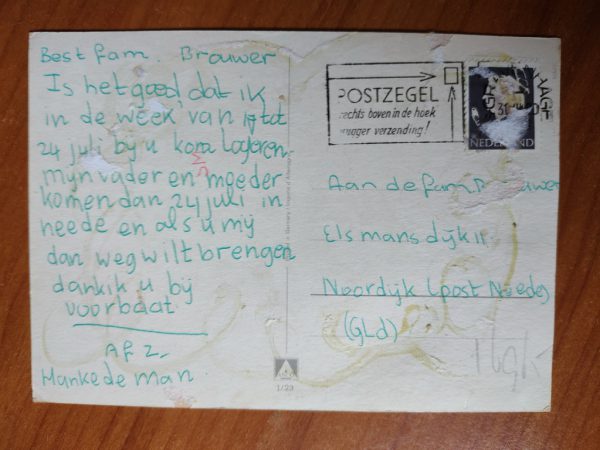 Best fam. Brouwer
Is het goed dat ik
in de week van 19 tot
24 juli by u kom logeren
mijn vader en moeder
komen dan 24 juli in
neede en als u mij
dan weg wilt brengen
dank ik u bij
voorbaat
Af Z_
Hanke de Man
POSTZEGEL
rechts boven in de hoek
verzending!
NEDERLAND
Aan de fam. Brouwer
Elsmansdijk 11
Noordijk (post Neede)
(GLd)
1/23